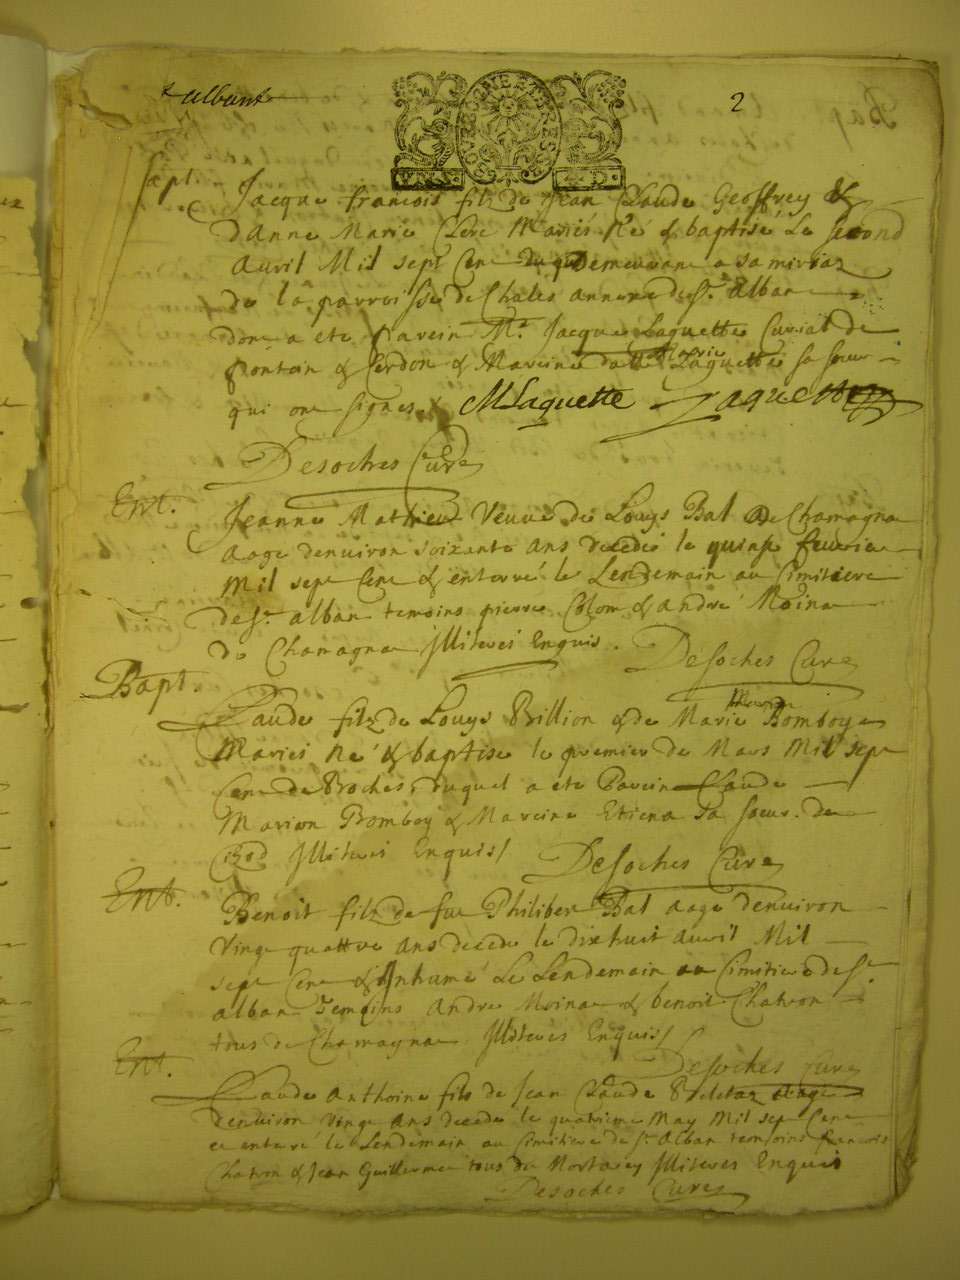 st albant
2
BOURGOGNE ET BRESSE
Bapt.
Jacque francois filz de Jean Claude Geoffrey &
d'Anne Marie Clerc Mariés Né & baptisé Le second
Auril Mil sept Cent demeurant a
de la parroisse de Chales annexe de st. Alban
dont a ete parein Mr. Jacque Laguette Curial de
pontein & Cerdon & Mareine dalle Marie Laguette sa soeur
qui ont signes MLaguette Laguette
Desoches Curé
Ent.
Jeanne Mathieu Veuve de Louys Bal de Chamagna
aage denuiron soixante ans decedeé le quinse feurier
Mil sept Cent & enterré le Lendemain au Cimitiere
de st. alban temoins pierre Colom & andré Moina
de Chamagna Illiterés Enquis.
Desoches Curé
Bapt.
Claude filz de Louys Billion & de Marie Marion Bomboy
Mariés Né & baptisé le premier de Mars Mil sept
Cent de Broches, duquel a ete Parein Claude
Marion Bomboy & Mareine Etiena sa soeur. de
Illiterés Enquis/ Desoches Curé
Ent.
Benoit filz de feu Philibert Bal aage denuiron
Vingt quattre ans decede le dixhuit auril Mil
sept Cent & Inhumé Le Lendemain au Cimitiere de st.
alban Temoins Andre Moina & benoit Chatron
tous de Chamagna Illiterés Enquis/
Desoches Curé
Ent.
Claude Anthoine fils de Jean Claude aagé
denuiron Vingt ans decede le quatrieme May Mil sept Cent
et enterré le Lendemain au Cimitiere de st. Alban temoins francois
Chatron & Jean Guillerme tous de Mortarey Illiteres Enquis
Desoches Curé